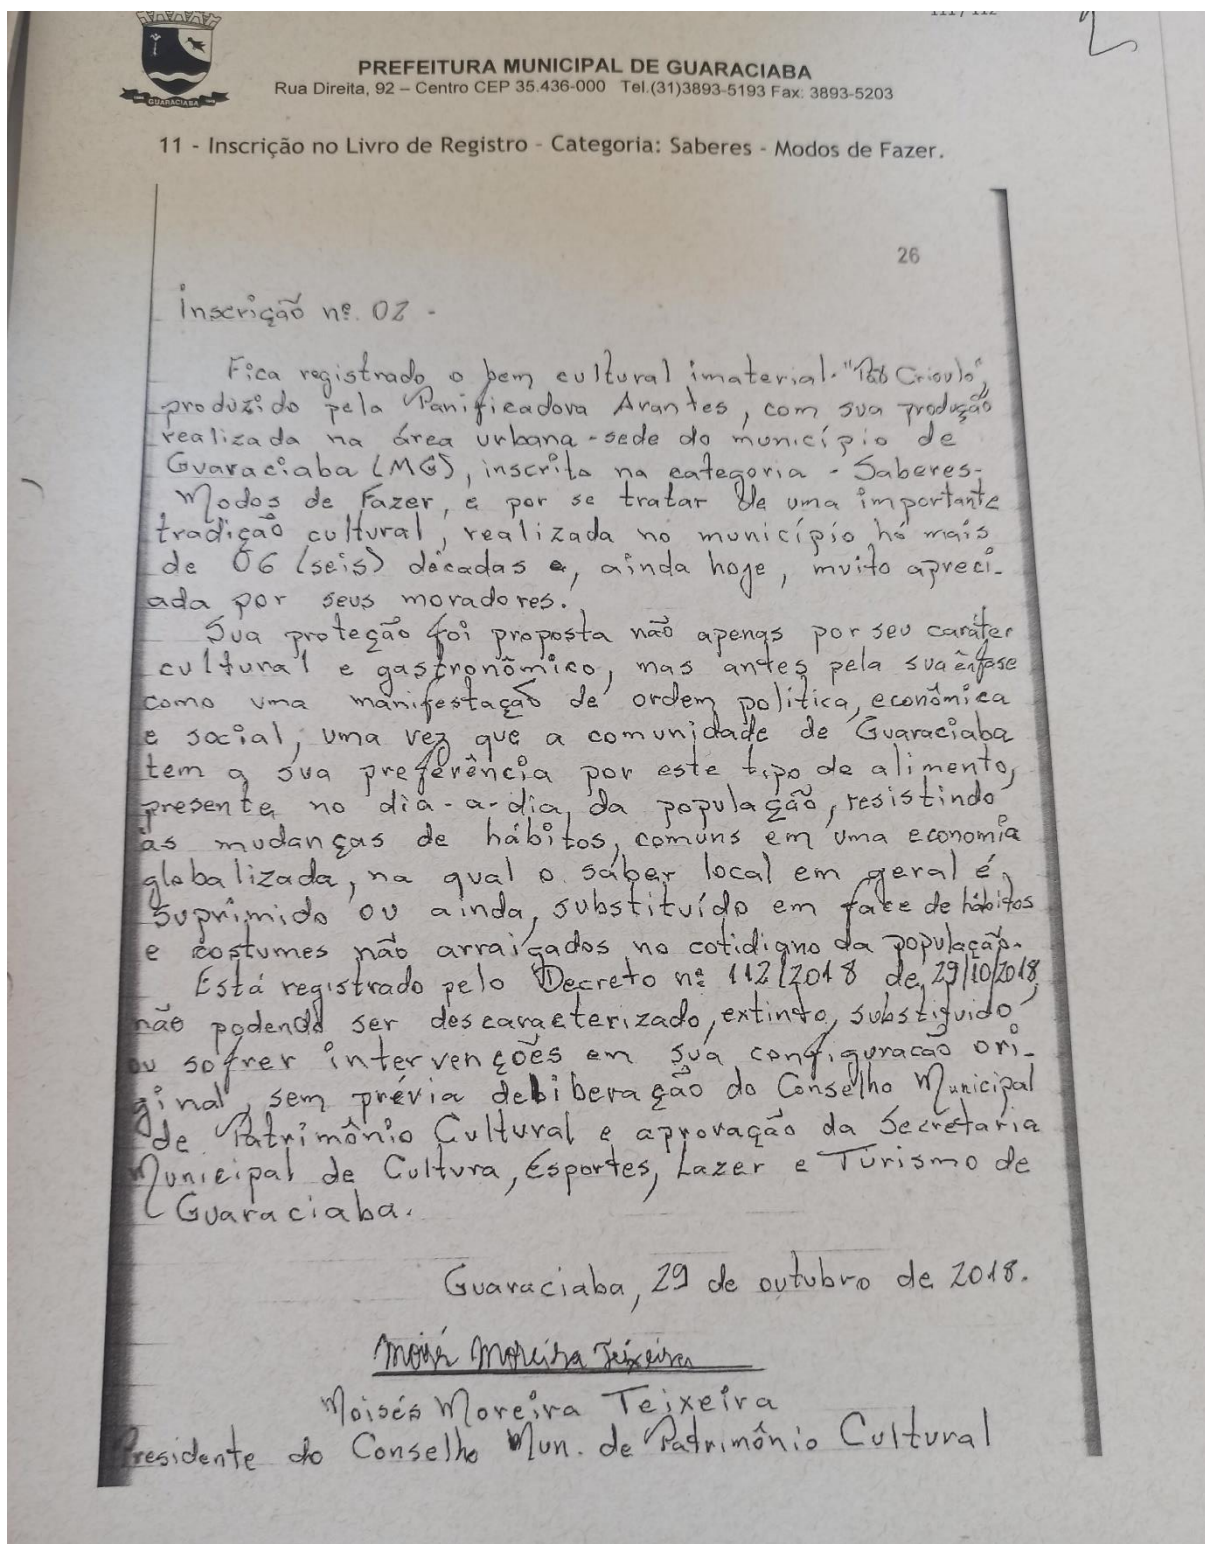 GUARACIABA
PREFEITURA MUNICIPAL DE GUARACIABA
Rua Direita, 92 – Centro CEP 35.436-000 Tel.(31)3893-5193 Fax: 3893-5203
11 - Inscrição no Livro de Registro - Categoria: Saberes - Modos de Fazer.
26
Inscrição nº. 02 -
Fica registrado o bem cultural imaterial "Pão Crioulo",
produzido pela Panificadora Arantes, com sua produção
realizada na área urbana - sede do município de
Guaraciaba (MG), inscrito na categoria - Saberes-
Modos de Fazer, e por se tratar de uma importante
tradição cultural, realizada no município há mais
de 06 (seis) décadas e, ainda hoje, muito apreci-
ada por seus moradores.
Sua proteção foi proposta não apenas por seu caráter
cultural e gastronômico, mas antes pela sua ênfase
como uma manifestação de ordem política, econômica
e social, uma vez que a comunidade de Guaraciaba
tem a sua preferência por este tipo de alimento,
presente no dia-a-dia da população, resistindo
às mudanças de hábitos, comuns em uma economia
globalizada, na qual o saber local em geral é
suprimido ou ainda, substituído em face de hábitos
e costumes não arraigados no cotidiano da população.
Está registrado pelo Decreto nº 112/2018 de 29/10/2018,
não podendo ser descaracterizado, extinto, substituido
ou sofrer intervenções em sua configuração ori-
ginal, sem prévia deliberação do Conselho Municipal
de Patrimônio Cultural e aprovação da Secretaria
Municipal de Cultura, Esportes, Lazer e Turismo de
Guaraciaba.
Guaraciaba, 29 de outubro de 2018.
Moisés Moreira Teixeira
Moisés Moreira Teixeira
Presidente do Conselho Mun. de Patrimônio Cultural